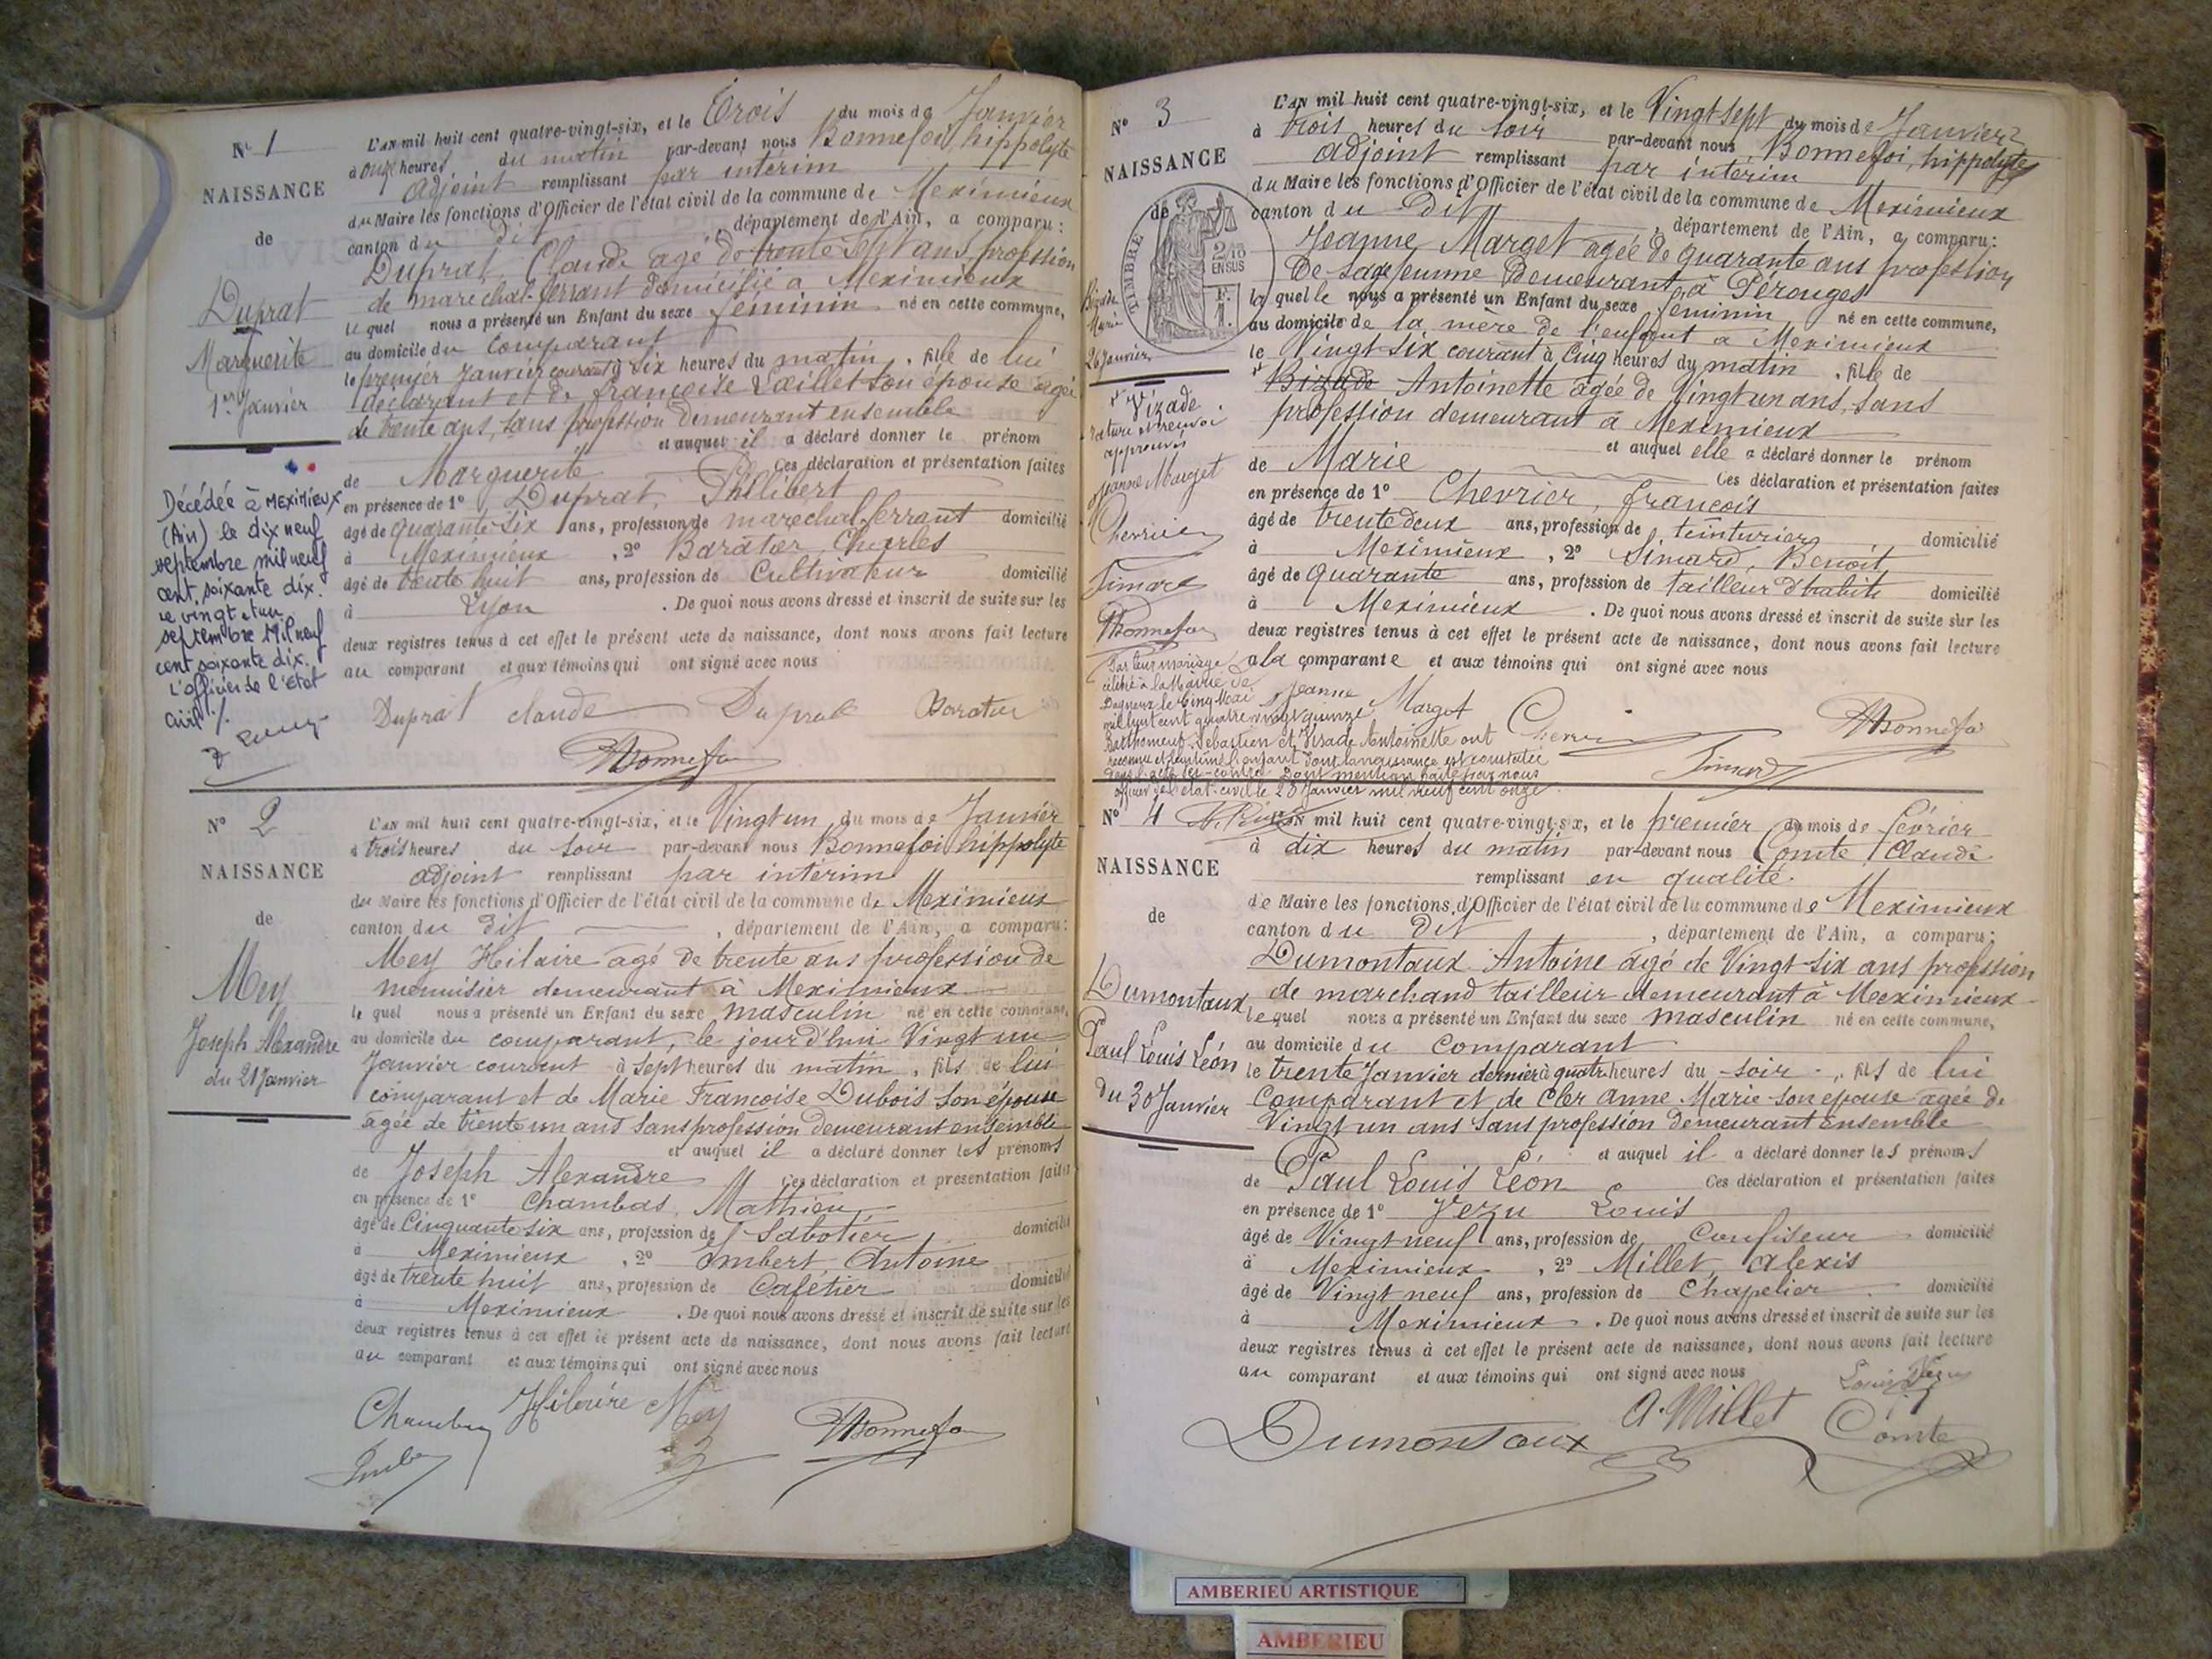 N° 1
NAISSANCE
de
Duprat
Marguerite
1er Janvier
Décédée à MEXIMIEUX
(Ain) le dix neuf
septembre mil neuf
cent soixante dix.
Le vingt et un
septembre Mil neuf
cent soixante dix.
L'officier de l'Etat
Civil
L'AN mil huit cent quatre-vingt-six, et le Trois du mois de Janvier
à onze heures du matin par-devant nous Bonnefoi, hippolyte
adjoint remplissant par intérim
du Maire les fonctions d'Officier de l'état civil de la commune de Meximieux
canton du dit, département de l'Ain, a comparu:
Duprat, Claude agé de trente sept ans, profession
de marechal-ferrant domicilié a Meximieux
lequel nous a présenté un Enfant du sexe féminin né en cette commune,
au domicile du comparant
le premier Janvier courant à six heures du matin, fille de lui
déclarant et de françoise son épouse agée
de trente ans, sans profession demeurant ensemble
et auquel il a déclaré donner le prénom
de Marguerite Ces déclaration et présentation faites
en présence de 1° Duprat, Philibert
âgé de quarante-six ans, profession de marechal ferrant domicilié
à Meximieux, 2° Baratier, Charles
âgé de trente huit ans, profession de Cultivateur domicilié
à Lyon. De quoi nous avons dressé et inscrit de suite sur les
deux registres tenus à cet effet le présent acte de naissance, dont nous avons fait lecture
au comparant et aux témoins qui ont signé avec nous
Duprat claude Duprat Baratier
Bonnefoi
N° 2
NAISSANCE
de
Mey
Joseph Alexandre
du 21 Janvier
L'AN mil huit cent quatre-vingt-six, et le Vingt un du mois de Janvier
à trois heures du soir par-devant nous Bonnefoi hippolyte
adjoint remplissant par intérim
du Maire les fonctions d'Officier de l'état civil de la commune de Meximieux
canton du dit, département de l'Ain, a comparu:
Mey Hilaire agé de trente ans profession de
menuisier demeurant à Meximieux
lequel nous a présenté un Enfant du sexe masculin né en cette commune,
au domicile du comparant, le jourd'hui Vingt un
Janvier courant à sept heures du matin, fils de lui
comparant et de Marie Françoise Dubois son épouse
agée de trente un ans sans profession demeurant ensemble
et auquel il a déclaré donner les prénoms
de Joseph Alexandre Ces déclaration et présentation faites
en présence de 1° Chambas, Mathieu
âgé de Cinquante six ans, profession de Sabotier domicilié
à Meximieux, 2° Imbert, Antoine
âgé de trente huit ans, profession de Cafetier domicilié
à Meximieux. De quoi nous avons dressé et inscrit de suite sur les
deux registres tenus à cet effet le présent acte de naissance, dont nous avons fait lecture
au comparant et aux témoins qui ont signé avec nous
Hilaire Mey Bonnefoi
N° 3
NAISSANCE
de
TIMBRE
2/10
EN SUS
Bizade
Marie
26 Janvier
Vizade
rature et renvoi
approuvés
Jeanne Marget
Chevrier
Simard
Bonnefoi
L'AN mil huit cent quatre-vingt-six, et le Vingt-sept du mois de Janvier
à trois heures du soir par-devant nous Bonnefoi, hippolyte
adjoint remplissant par intérim
du Maire les fonctions d'Officier de l'état civil de la commune de Meximieux
canton du dit, département de l'Ain, a comparu:
Jeanne Marget agée de quarante ans profession
de sage femme demeurant à Pérouges
laquelle nous a présenté un Enfant du sexe féminin né en cette commune,
au domicile de la mère de l'enfant a Meximieux
le Vingt-six courant à Cinq heures du matin, fille de
Bizade Antoinette agée de Vingt un ans, sans
profession demeurant à Meximieux
et auquel elle a déclaré donner le prénom
de Marie Ces déclaration et présentation faites
en présence de 1° Chevrier, françois
âgé de trente deux ans, profession de teinturier domicilié
à Meximieux, 2° Simard, Benoit
âgé de quarante ans, profession de tailleur d'habits domicilié
à Meximieux. De quoi nous avons dressé et inscrit de suite sur les
deux registres tenus à cet effet le présent acte de naissance, dont nous avons fait lecture
a la comparante et aux témoins qui ont signé avec nous
Par leur mariage
célébré à la Mairie de
Dagneux le Cinq Mai
mil huit cent quatre vingt quinze
Barthomeuf Sébastien et Vizade Antoinette ont
reconnu et légitimé l'enfant dont la naissance est constatée
dans l'acte ci-contre. Dont mention faite par nous
officier de l'état-civil le 23 Janvier mil neuf cent onze
Jeanne Marget Chevrier Bonnefoi
Simard
N° 4
NAISSANCE
de
Dumontaux
Paul Louis Léon
Du 30 Janvier
L'AN mil huit cent quatre-vingt-six, et le premier du mois de février
à dix heures du matin par-devant nous Comte Claude
remplissant en qualité
de Maire les fonctions d'Officier de l'état civil de la commune de Meximieux
canton du Dit, département de l'Ain, a comparu:
Dumontaux Antoine agé de Vingt-six ans profession
de marchand tailleur demeurant à Meximieux
lequel nous a présenté un Enfant du sexe masculin né en cette commune,
au domicile du comparant
le trente Janvier dernier à quatre heures du soir, fils de lui
Comparant et de Cler Anne Marie son épouse agée de
Vingt un ans sans profession demeurant Ensemble
et auquel il a déclaré donner les prénoms
de Paul Louis Léon Ces déclaration et présentation faites
en présence de 1° Vezu Louis
âgé de Vingt neuf ans, profession de Confiseur domicilié
à Meximieux, 2° Millet, Alexis
âgé de Vingt neuf ans, profession de Chapelier domicilié
à Meximieux. De quoi nous avons dressé et inscrit de suite sur les
deux registres tenus à cet effet le présent acte de naissance, dont nous avons fait lecture
au comparant et aux témoins qui ont signé avec nous
Louis Vezu
Dumontaux A. Millet Comte
AMBERIEU ARTISTIQUE
AMBERIEU